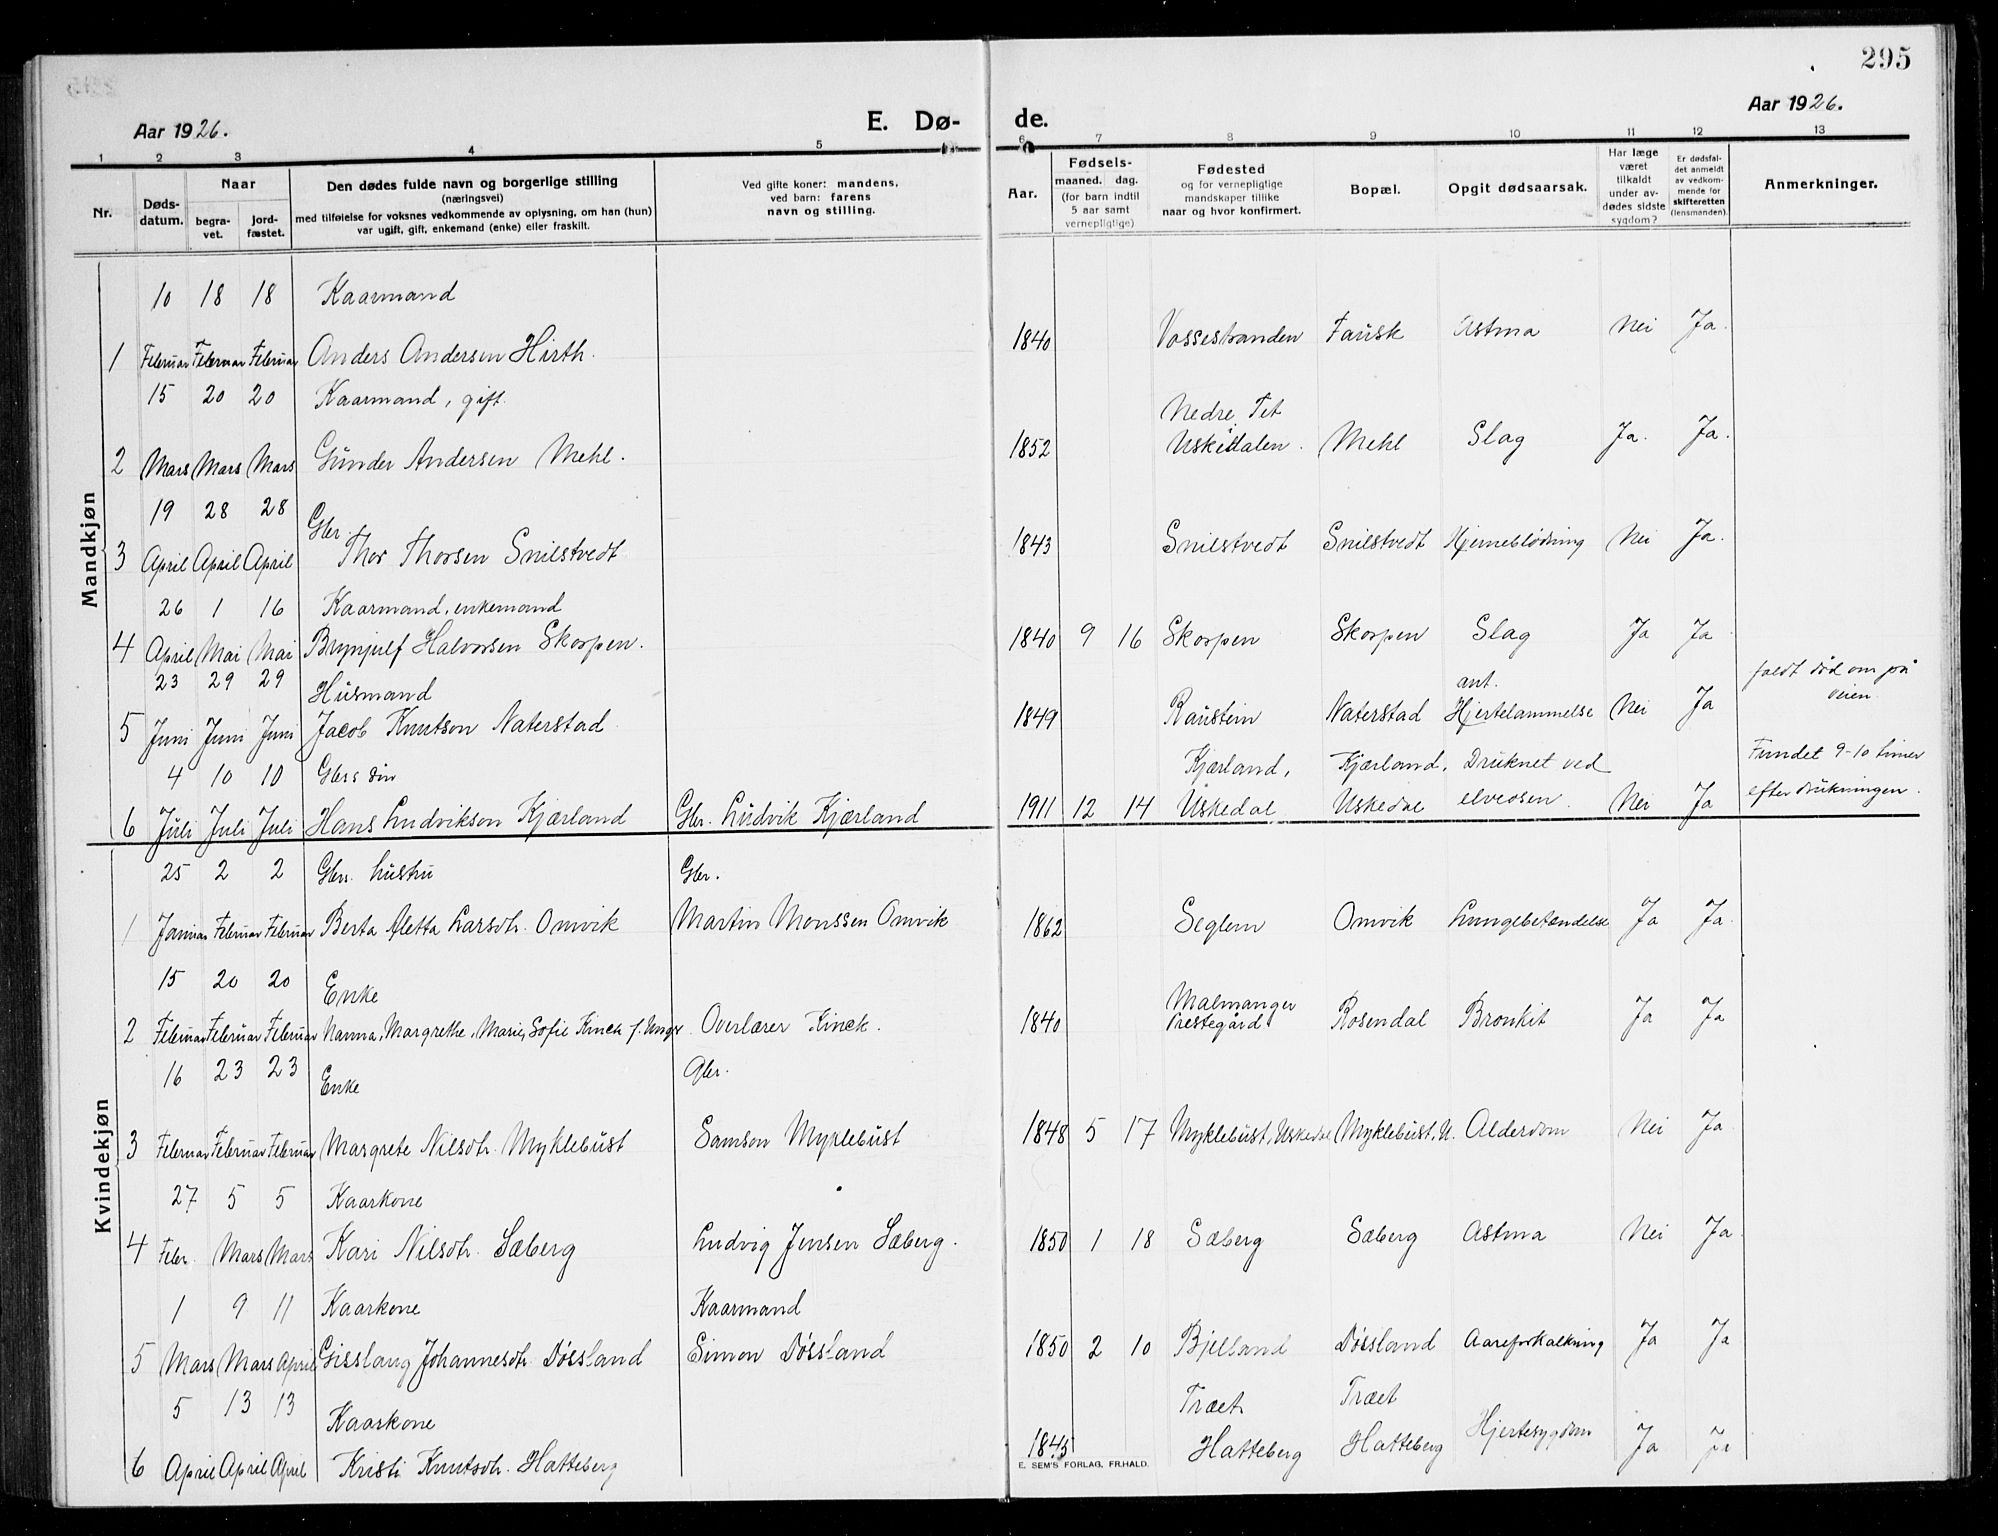 295
Aar 1926.
E. Dø-
de.
Aar 1926.
1 2 3 4 5 6 7 8 9 10 11 12 13
Nr.
Døds-
datum.
Naar
begra-
vet.
jord-
fæstet.
Den dødes fulde navn og borgerlige stilling
(næringsvei)
med tilføielse for voksnes vedkommende av oplysning, om han (hun)
var ugift, gift, enkemand (enke) eller fraskilt.
Ved gifte koner: mandens,
ved barn: farens
navn og stilling.
Aar.
Fødsels-
maaned. dag.
(for barn indtil
5 aar samt
vernepligtige)
Fødested
og for vernepligtige
mandskaper tillike
naar og hvor konfirmert.
Bopæl.
Opgit dødsaarsak.
Har læge
været
tilkaldt
under av-
dødes sidste
sygdom?
Er dødsfal-
det anmeldt
av vedkom-
mende for
skifteretten
(lensmanden).
Anmerkninger.
Mandkjøn
10 18 18 Kaarmand
1 Februar Februar Februar Anders Andersen Hirth. 1840 Vossestranden Fausk Astma Nei Ja.
15 20 20 Kaarmand, gift. Nedre Tet
2 Mars Mars Mars Gunder Andersen Mehl. 1852 Uskedalen. Mehl Slag Ja. Ja.
19 28 28 Gbr
3 April April April Thor Thorsen Snilstvedt 1843 Snilstvedt Snilstvedt Hjerneblødning Nei Ja.
26 1 16 Kaarmand, enkemand
4 April Mai Mai Brynjulf Halvorsen Skorpen. 1840 9 16 Skorpen Skorpen Slag Ja Ja
23 29 29 Husmand ant. faldt død om på
veien.
5 Juni Juni Juni Jacob Knutson Naterstad 1849 Raustein Naterstad Hjertelammelse Nei Ja
4 10 10 Gbrs søn Kjærland, Kjærland, Druknet ved Fundet 9-10 timer
6 Juli Juli Juli Hans Ludvikson Kjærland Gbr. Ludvik Kjærland 1911 12 14 Uskedal Uskedal elveosen. Nei Ja efter drukningen.
Kvindekjøn
25 2 2 Gbrs. hustru Gbr.
1 Januar Februar Februar Berta Aletta Larsdtr. Omvik Martin Monssen Omvik 1862 Seglem Omvik Lungebetændelse Ja Ja.
15 20 20 Enke Malmanger
2 Februar Februar Februar Nanna, Margrethe, Marie, Sofie Kinck f. Unger. Overlærer Kinck. 1840 Prestegård Rosendal Bronkit Ja Ja
16 23 23 Enke Gbr.
3 Februar Februar Februar Margrete Nilsdtr. Myklebust Samson Myklebust 1848 5 17 Myklebust, Uskedal Myklebust, U. Alderdom Nei Ja.
27 5 5 Kaarkone
4 Febr. Mars Mars Kari Nilsdtr. Sæberg Ludvig Jensen Sæberg. 1850 1 18 Sæberg Sæberg Astma Nei Ja.
1 9 11 Kaarkone Kaarmand
5 Mars Mars April Gisslaug Johannesdtr. Døssland Simon Døssland 1850 2 10 Bjelland Døssland Aareforkalkning Ja Ja
5 13 13 Kaarkone Træet Træet
6 April April April Kristi Knutsdtr. Hatteberg 1845 Hatteberg Hatteberg Hjertesygdom Ja Ja
E. SEM'S FORLAG, FR.HALD.